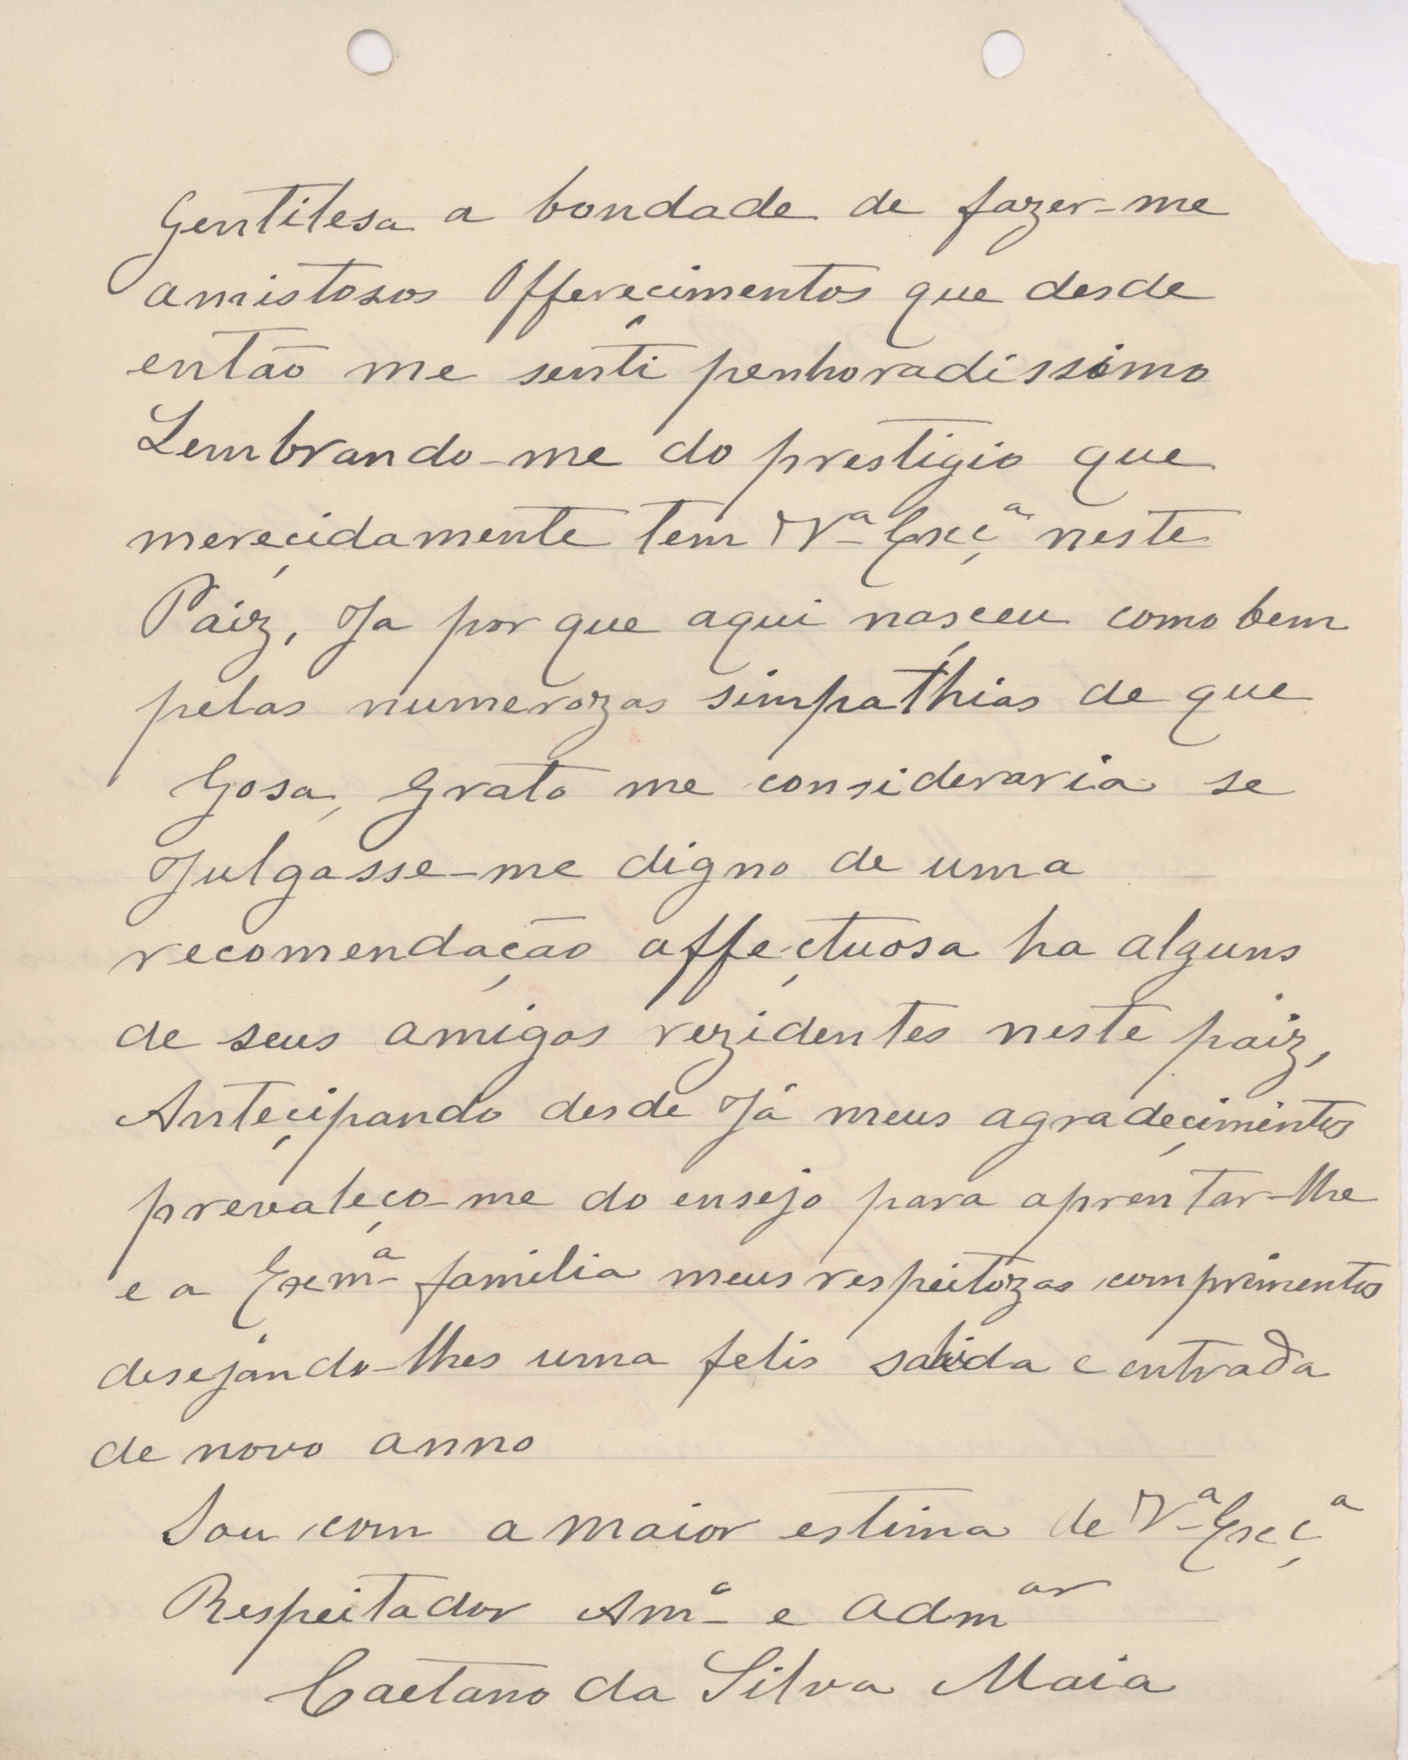 Gentilesa a bondade de fazer-me
amistosos Offerecimentos que desde
então me senti penhoradissimo
Lembrando-me do prestigio que
mereçidamente tem Vª Exçª neste
Paiz, Ja por que aqui nasçeu como bem
pelas numerozas simpathias de que
Gosa, Grato me consideraria se
Julgasse-me digno de uma
recomendação affeçtuosa ha alguns
de seus amigos rezidentes neste paiz,
Anteçipando desde Já meus agradeçimentos
prevaleço-me do ensejo para aprentar-lhe
e a Exmª familia meus respeitozas comprimentos
desejando-lhes uma felis sahida e entrada
de novo anno
Sou com a maior estima de Vª Exçª
Respeitador Amº e Admºr
Caetano da Silva Maia